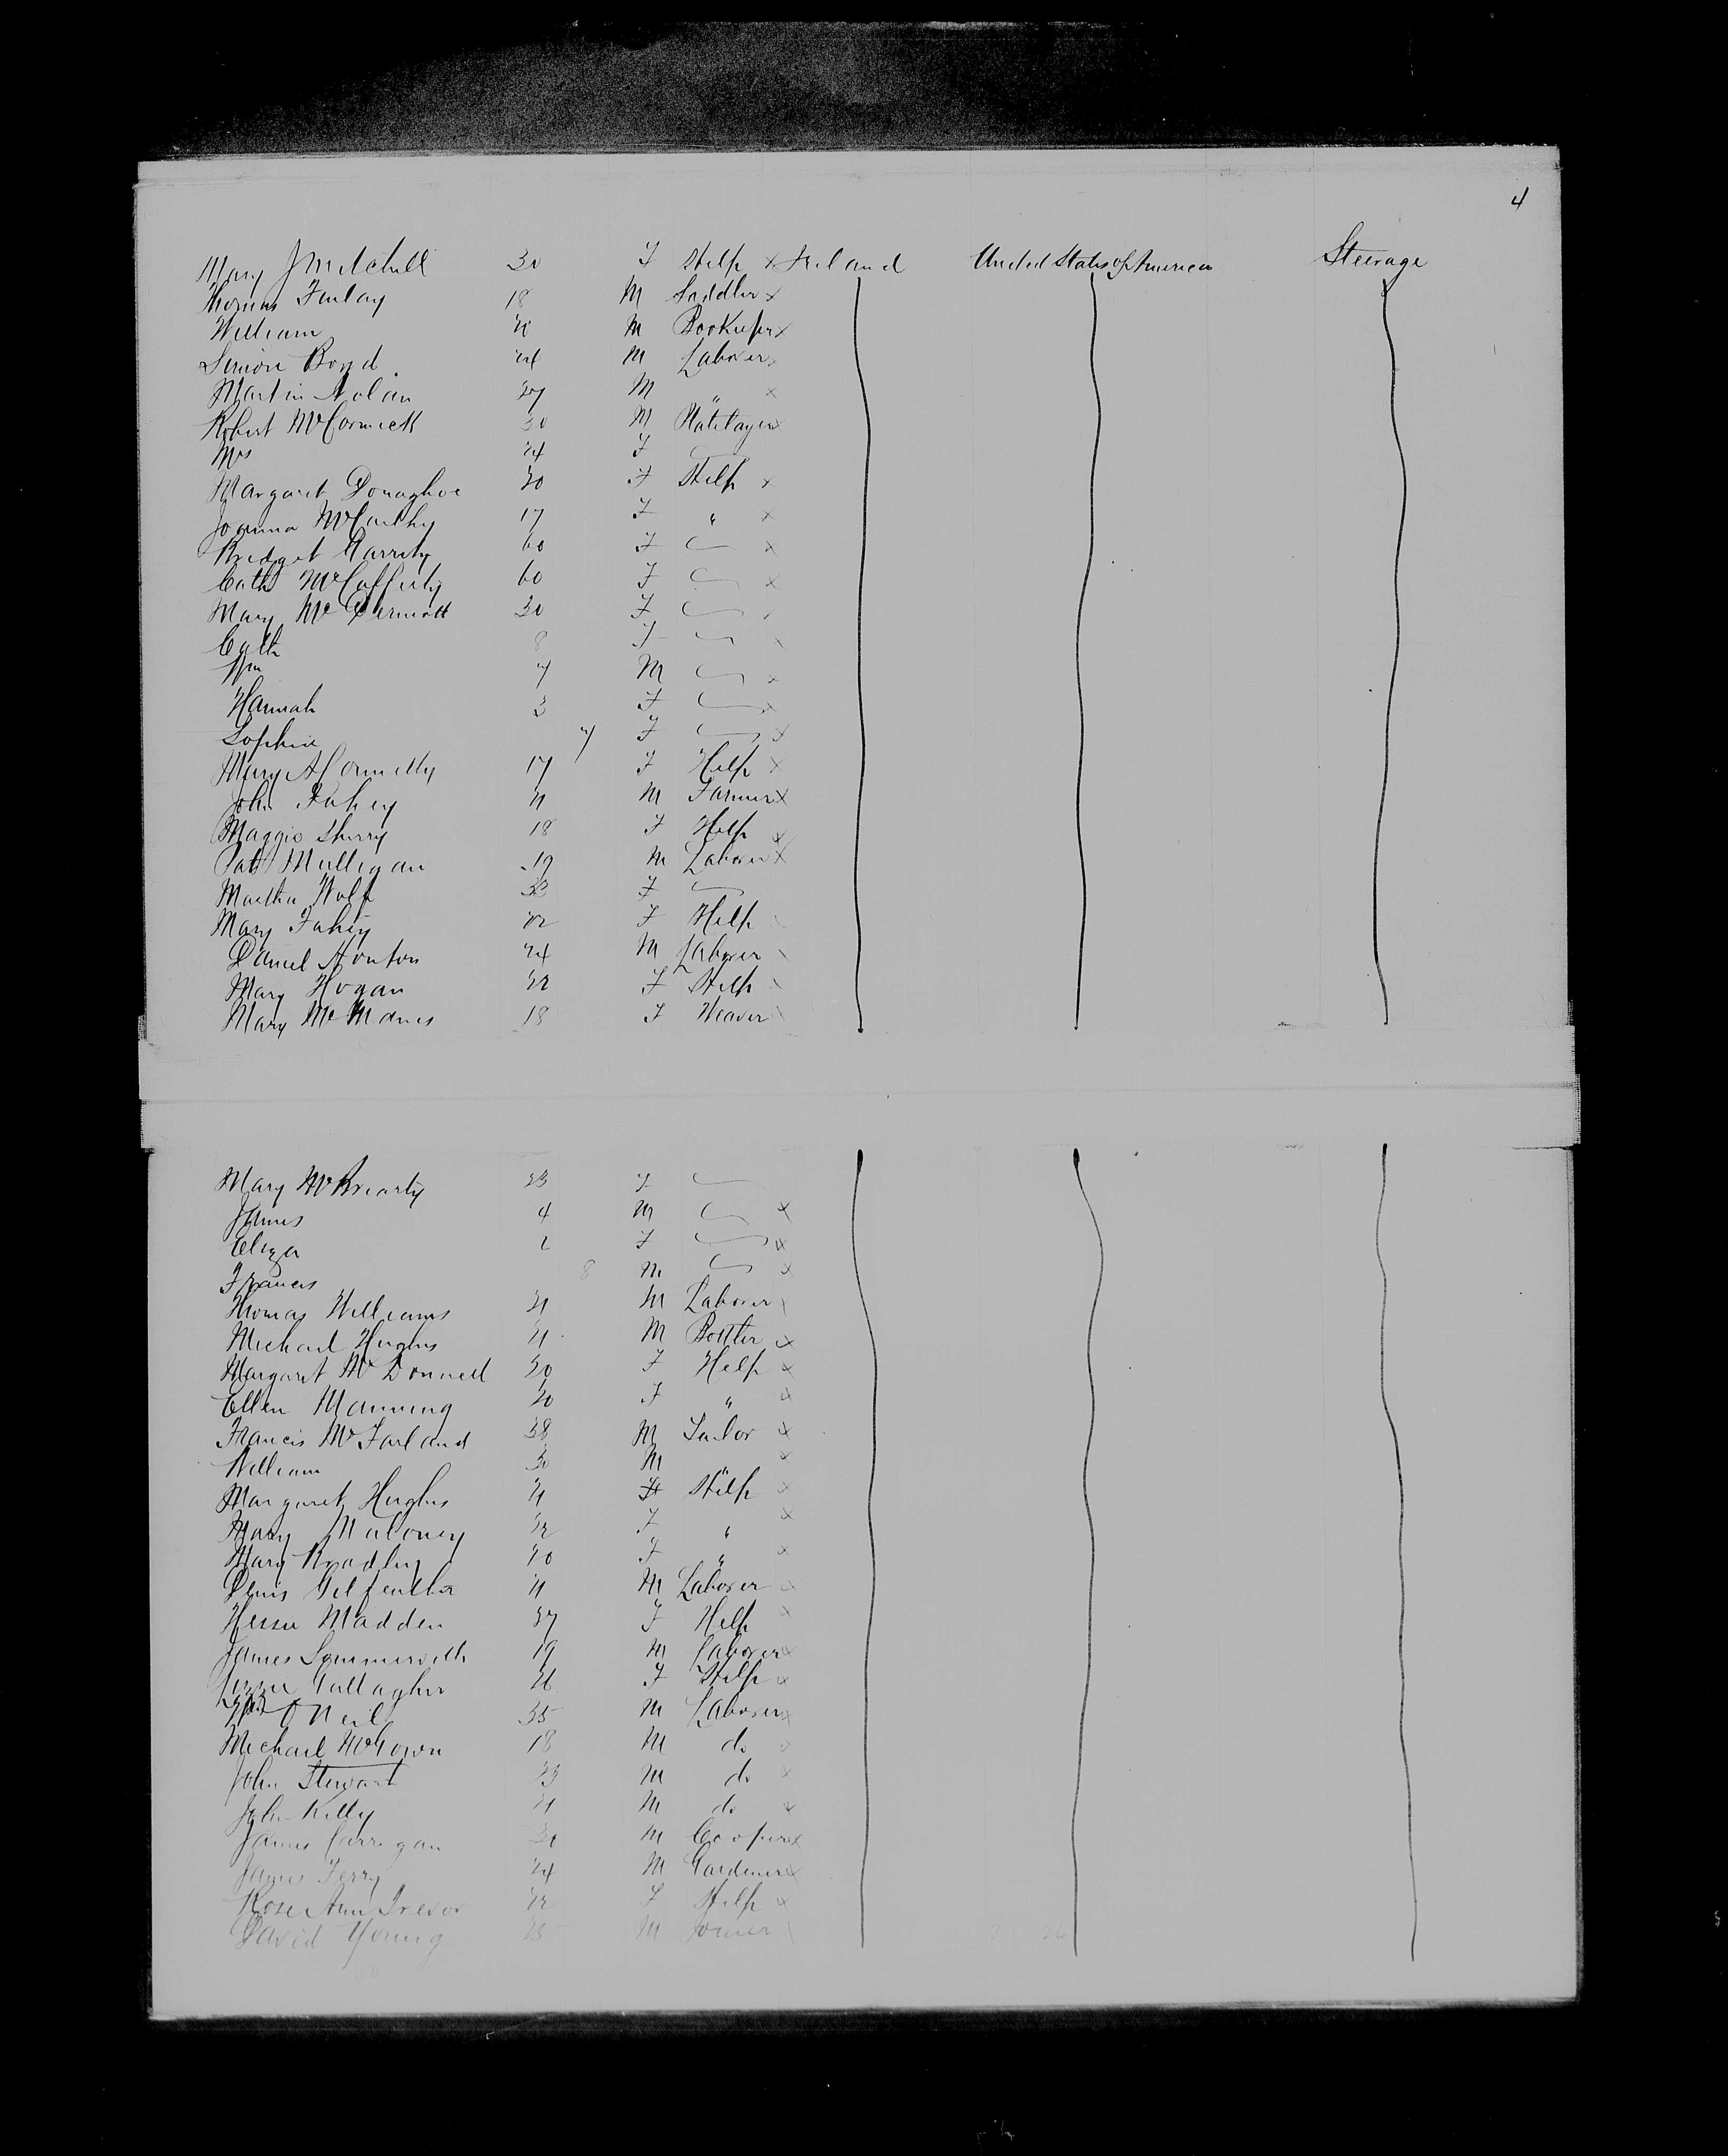 4
Mary J Mitchell 30 F Help x Ireland United States of America Steerage
Thomas Finlay 18 M Saddler x
William 20 M Bookeeper x
Simon Boyd 24 M Laborer x
Martin Nolan 27 M " x
Robert McCormick 30 M Platelayer x
Mrs 24 F
Margaret Donaghoe 20 F Help x
Joanna McCarthy 17 F " x
Bridget Garrity 60 F x
Cath McCafferty 60 F x
Mary McDermott 30 F
Cath 8 F x
Wm 7 M x
Hannah 3 F x
Sophie 7 F x
Mary A Connelly 17 F Help x
John Fahey 21 M Farmer x
Maggie Sherry 18 F Help x
Pat Mulligan 19 M Laborer x
Martha Wolf 33 F
Mary Fahey 22 F Help
Daniel Houton 24 M Laborer
Mary Hogan 22 F Help
Mary McManus 18 F Weaver
Mary McBrearty 23 F
James 4 M x
Eliza 2 F x
Francis 8 M x
Thomas Williams 21 M Laborer
Michael Hughes 21 M Bottler x
Margaret McDonnell 20 F Help x
Ellen Manning 20 F " x
Francis McFarland 38 M Tailor x
William 30 M " x
Margaret Hughes 21 F Help x
Mary Maloney 22 F " x
Mary Bradley 20 F " x
Denis 21 M Laborer x
Madden 27 F Help x
James Sommerville 19 M Laborer x
Gallagher F Help x
O'Neil 35 M Laborer x
Michael McGowan 18 M do x
John Stewart 23 M do x
John Kelly 21 M do x
James Carrigan M Cooper x
James Ferry 24 M Gardener x
Rose Ann Trevor 22 F Help x
David Young 25 M Joiner